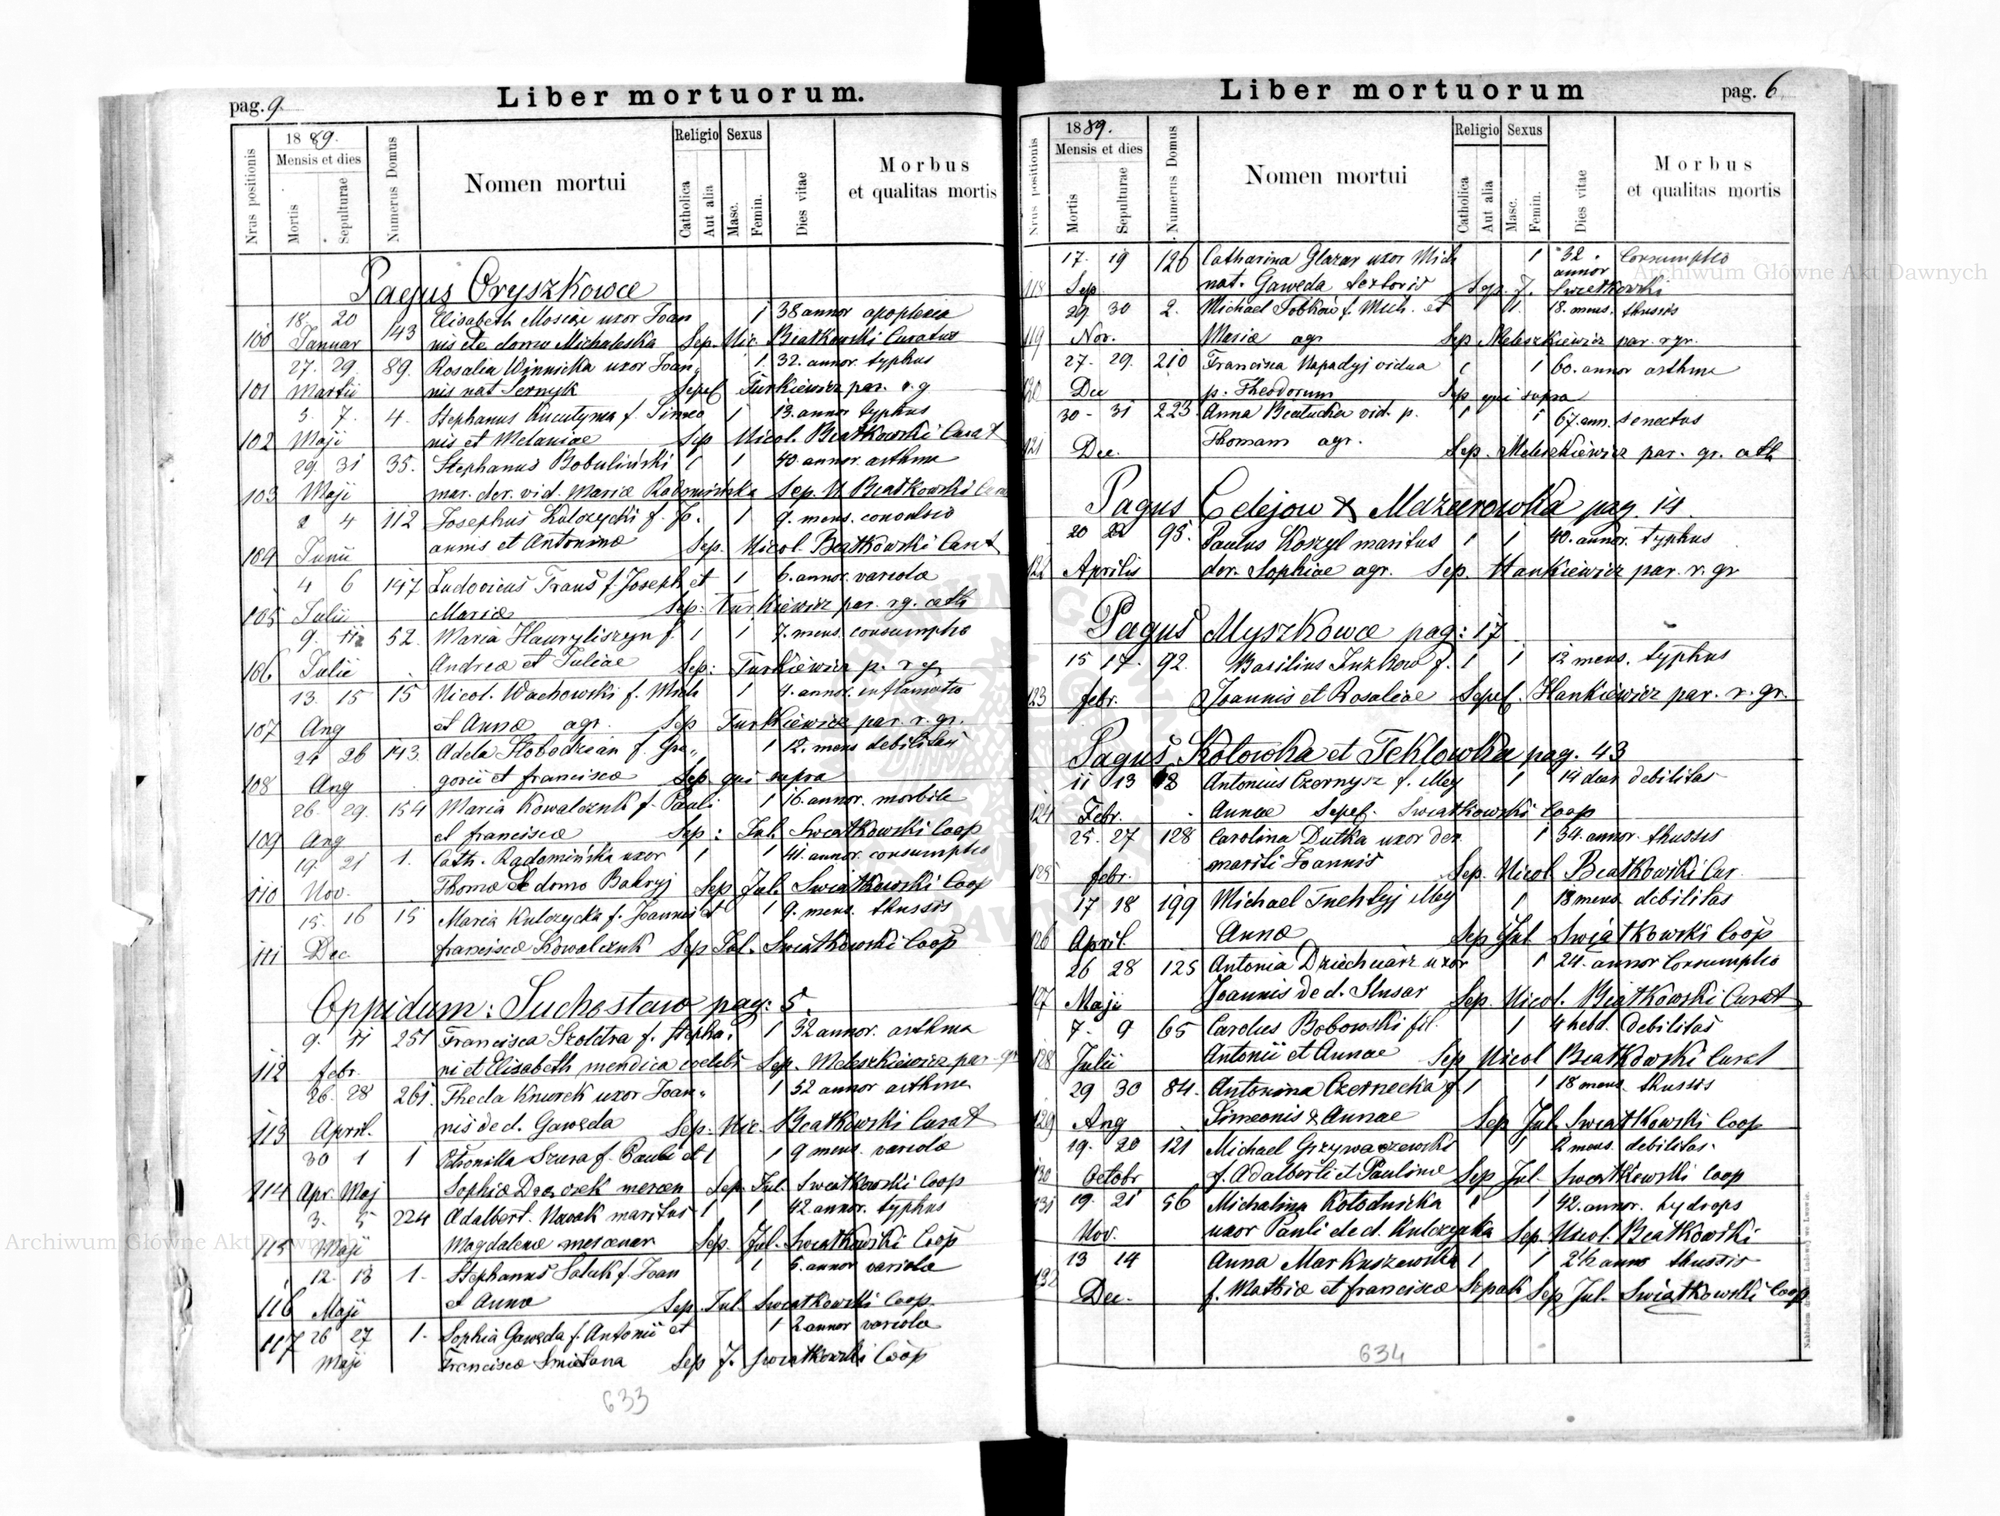 pag. 9.
Liber mortuorum.
Nrus positionis
1889.
Mensis et dies
Mortis
Sepulturae
Numerus Domus
Nomen mortui
Religio
Catholica
Aut alia
Sexus
Masc.
Femin.
Dies vitae
Morbus
et qualitas mortis
Pagus Oryszkowce
18 20 Elisabeth uxor Joan 1 38 annor apoplexia
100 Januar 143 nis de domo Michalska Sep. Nic. Beatkowski Curatus
27. 29. 89. Rosalia Winnicka uxor Joan 1. 32. annor. typhus
101 Martii nis nat Sernyk Sepel Turkiewicz par. r. g
5. 7. 4. Stephanus f. Simeo 1 13. annor typhus
102 Maji nis et Melaniae Sep Nicol. Beatkowski Curat
29. 31 35. Stephanus Bobuliński 1 1 40. annor. asthma
103 Maji mar. der. vid. Maria Radomińska Sep. N Beatkowski Cura
2 4 112 Josephus Kulczycki f. Jo. 1 9. mens. convulsio
104 Junii annis et Antonina Sep. Nicol. Beatkowski Curat
4 6 147 Ludovicus f. Joseph et 1 6. annor. variola
105 Julii Mariae Sep: Turkiewicz par. rg. cath
9. 11 52. Maria Hawryliszyn f. 1 1 7. mens. consumptio
106 Julii Andreae et Juliae Sep: Turkiewicz p. r g
13. 15 15 Nicol. Wachowski f. Mich 1 4. annor. inflamatio
107 Aug et Annae agr. Sep Turkiewicz par. r. gr.
24 26 143. Adela Słobodzian f. Gre 1 12. mens debilitas
108 Aug gorii et francisca Sep qui supra
26. 29. 154 Maria Kowalczuk f. Pauli 1 16. annor. morbile
109 Aug et francisca Sep: Jul. Swiatkowski Coop
19. 21 1. Cath. Radomińska uxor 1 1 41. annor. consumptio
110 Nov. Thoma de domo Bakryj Sep Jul. Swiatkowski Coop
15. 16 15 Maria Kulczycka f. Joannis et 1 9. mens. thussis
111 Dec. francisca Kowalczuk Sep Jul. Swiatkowski Coop
Oppidum: Suchostaw pag: 5.
9. 11 251 Francisca Szoldra f. Stepha 1 32 annor. asthma
112 febr. ni et Elisabeth mendica coelebs Sep. Meleszkiewicz par. gr
26. 28 261. Thecla Knurek uxor Joan 1 52 annor asthma
113 April. nis de d. Gawęda Sep. Nic. Beatkowski Curat
30 1 1 Petronilla Szura f. Pauli et 1 1 9 mens. variola
114 Apr Maj Sophia mercen Sep. Jul. Swiatkowski Coop
3. 5 224 Adalbert. Nowak maritus 1 1 42. annor. typhus
115 Maji Magdalenae mercenar Sep. Jul. Swiatkowski Coop
12. 13 1. Stephanus f. Joan 1 6. annor variola
116 Maji et Annae Sep. Jul Swiatkowski Coop.
117 26 27 1. Sophia Gawęda f. Antonii et 1 2 annor variola
Maji Francisca Smietana Sep J. Swiatkowski Coop
633
Liber mortuorum
pag. 6
Nrus positionis
1889.
Mensis et dies
Mortis
Sepulturae
Numerus Domus
Nomen mortui
Religio
Catholica
Aut alia
Sexus
Masc.
Femin.
Dies vitae
Morbus
et qualitas mortis
17. 19 126 Catharina Glazar uxor Mich 1 32 annor Consumptio
118 Sep nat. Gawęda Sep. J. Swiatkowski
29. 30 2. Michael f. Mich. et 18. mens. thussis
119 Nov. Maria agr Sep Meleszkiewicz par. r gr.
27. 29. 210 Francisca Napadyj vidua 1 60. annor asthma
120 Dec p. Theodorum Sep qui supra
30. 31 223 Anna Beatucka vid. p. 1 1 67. ann. senectus
121 Dec. Thomam agr. Sep. Meleszkiewicz par. gr. cath
Pagus Celejow & Mazurowka pag 14.
20 22 95. Paulus Koszyl maritus 1 1 40. annor. typhus
122 Aprilis der. Sophiae agr. Sep. Hankiewicz par. r. gr
Pagus Myszkowce pag: 17
15 17. 92. Basilius f. 1 1 12 mens. typhus
123 febr. Joannis et Rosaliae Sepel. Hankiewicz par. r. gr.
Pagus Kotowka et Teklowka pag. 43
11 13 Antonius Czornysz f. illeg 1 14 dier debilitas
124 Febr. Annae Sepel. Swiatkowski Coop
25. 27 128 Carolina Dutka uxor der 1 34. annor. thussis
125 febr. mariti Joannis Sep. Nicol Beatkowski Cur.
17 18 199 Michael illeg 1 18 mens. debilitas
126 April Annae Sep Jul Swiątkowski Coop
26 28 125 Antonia Dziechciarz uxor 1 24. annor Consumptio
127 Maji Joannis de d. Slusar Sep. Nicol. Biatkowski Curat
7. 9 65 Carolus Bobowski fil. 1 4 hebd. debilitas
128 Julii Antonii et Annae Sep Nicol Beatkowski Curat
29 30 84. Antonina Czernecka f. 1 1 18 mens. thussis
129 Aug Simeonis & Annae Sep Jul Swiatkowski Coop
19. 20 121 Michael Grzywaczewski 1 2 mens. debilitas.
130 Octobr f. Adalberti et Paulinae Sep Jul Swiatkowski Coop
131 19. 21 56 Michalina Kołodnicka 1 1 42. annor. hydrops
Nov. uxor Pauli de d. Kulczycka Sep. Nicol. Beatkowski
13 14 Anna Markuszewska 1 1 2½ anno thussis
132 Dec. f. Mathiae et francisca Szpak Sep Jul. Swiątkowski Coop
634
Archiwum Główne Akt Dawnych
Archiwum Główne Akt Dawnych